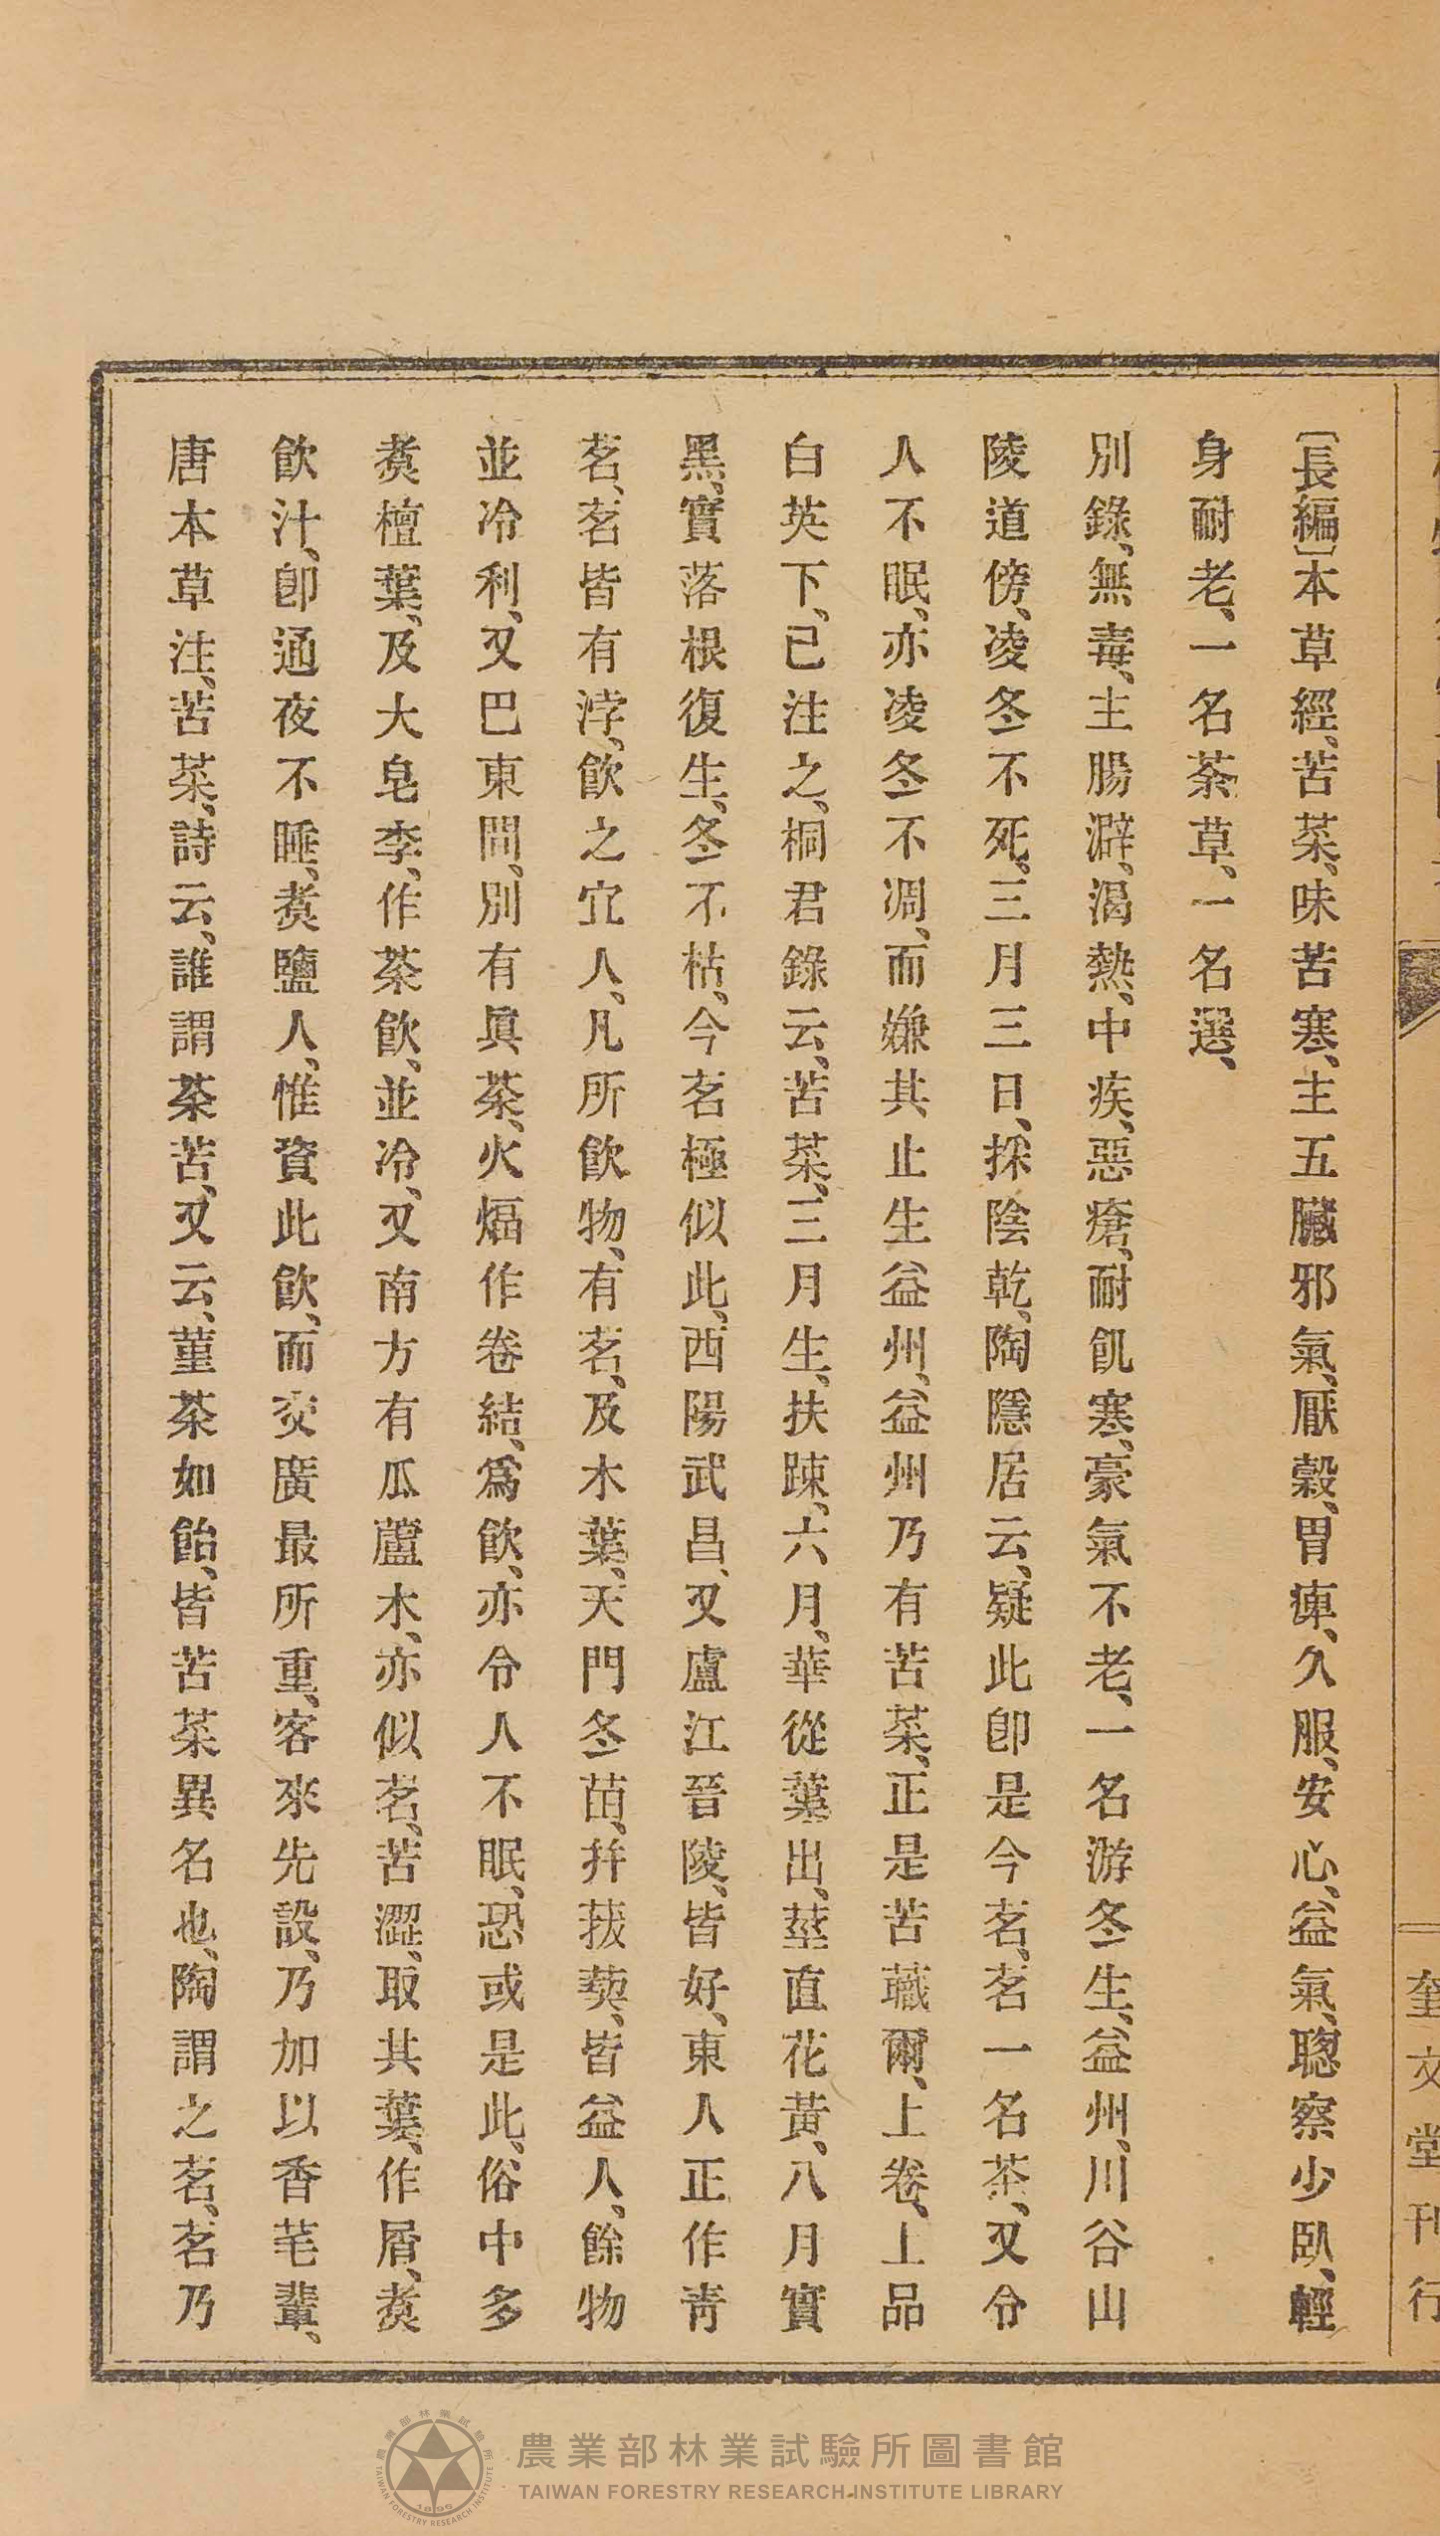 〔長編〕本草經、苦菜、味苦寒、主五臟邪氣、厭穀、胃痺、久服、安心、益氣、聰察少臥、輕
身耐老、一名荼草、一名選、
別錄、無毒、主腸澼、渴熱、中疾、惡瘡、耐飢寒、豪氣不老、一名游冬生、益州、川谷山
陵道傍、凌冬不死、三月三日、採陰乾、陶隱居云、疑此卽是今茗、茗一名荼、又令
人不眠、亦凌冬不凋、而嫌其止生益州、益州乃有苦菜、正是苦蘵爾、上卷、上品
白英下、已注之、桐君錄云、苦菜、三月生、扶疎、六月、華從葉出、莖直花黃、八月實
黑、實落根復生、冬不枯、今茗極似此、西陽武昌、又廬江晉陵、皆好、東人正作靑
茗、茗皆有浡、飮之宜人、凡所飮物、有茗、及木葉、天門冬苗、幷菝葜、皆益人、餘物
並冷利、又巴東間、別有眞茶、火煏作卷結、爲飮、亦令人不眠、恐或是此、俗中多
煑檀葉、及大皂李、作茶飮、並冷、又南方有瓜蘆木、亦似茗、苦澀、取其葉、作屑、煑
飮汁、卽通夜不睡、煑鹽人、惟資此飮、而交廣最所重、客來先設、乃加以香芼輩、
唐本草注、苦菜、詩云、誰謂荼苦、又云、菫荼如飴、皆苦菜異名也、陶謂之茗、茗乃
奎文堂刊行
農業部林業試驗所圖書館
TAIWAN FORESTRY RESEARCH INSTITUTE LIBRARY